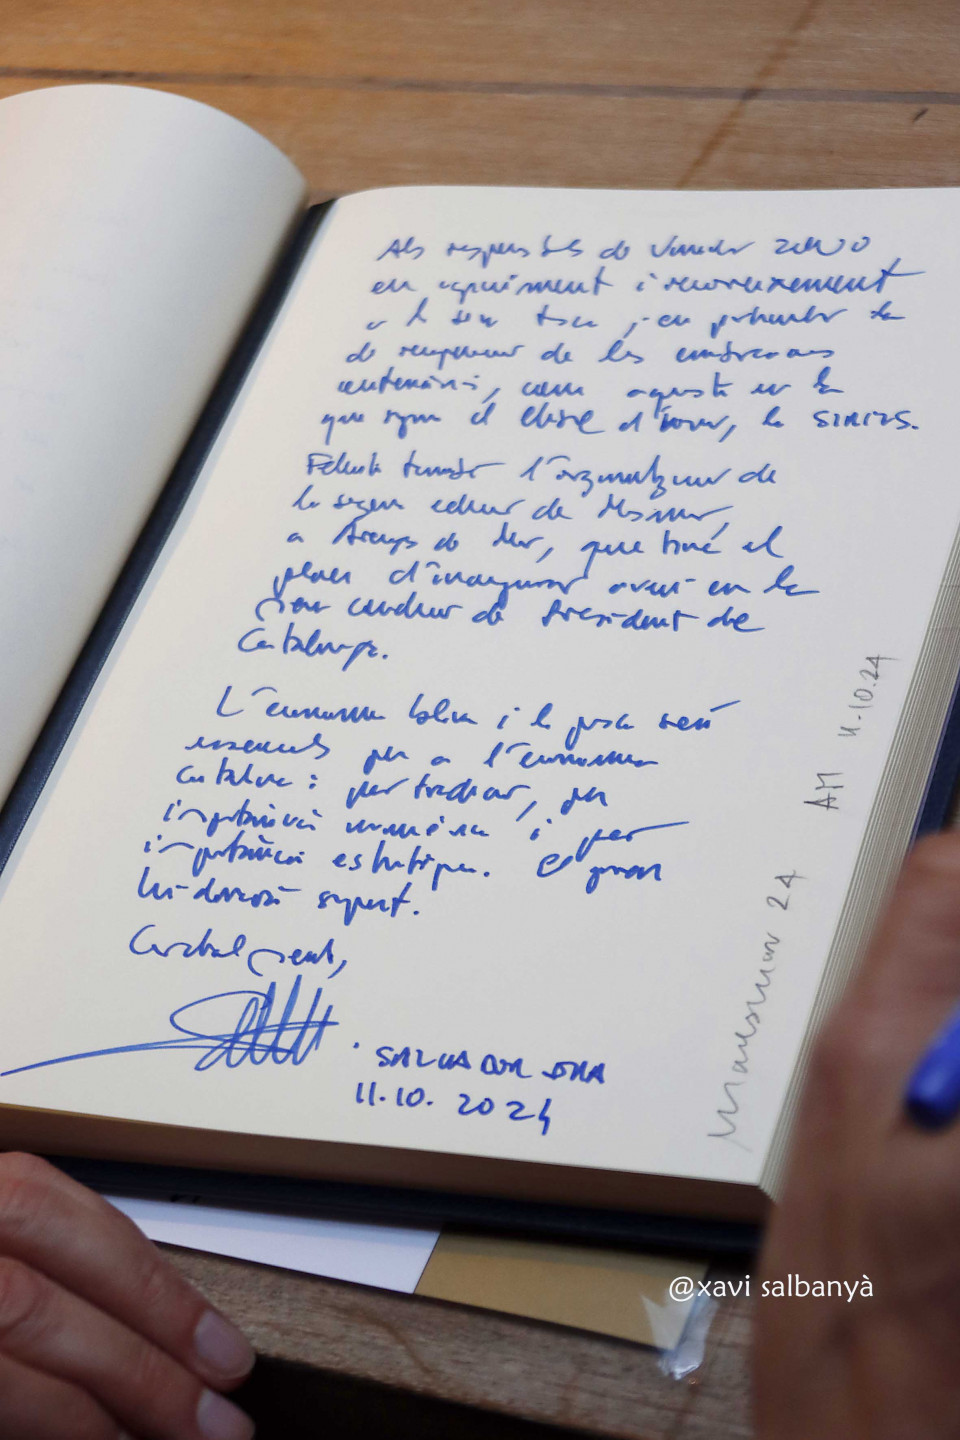 Als responsables de Vineder 2000
en agraïment i reconeixement
a la seva tasca i en particular la
de recuperar de les embarcacions
centenàries, com aquesta en la
que signo el llibre d'honor, la SIRIUS.
Felicito també l'organització de
la segona edició de Maresmar,
a Arenys de Mar, que tinc el
plaer d'inaugurar avui en la
meva condició de President de
Catalunya.
L'economia blava i la pesca seran
essencials per a l'economia
catalana: per tradició, per
importància numèrica i per
importància estratègica. El govern
hi donarà suport.
Cordialment,
SALVADOR ILLA
11.10.2024
Maresmar 24 AM 11.10.24
@xavi salbanyà